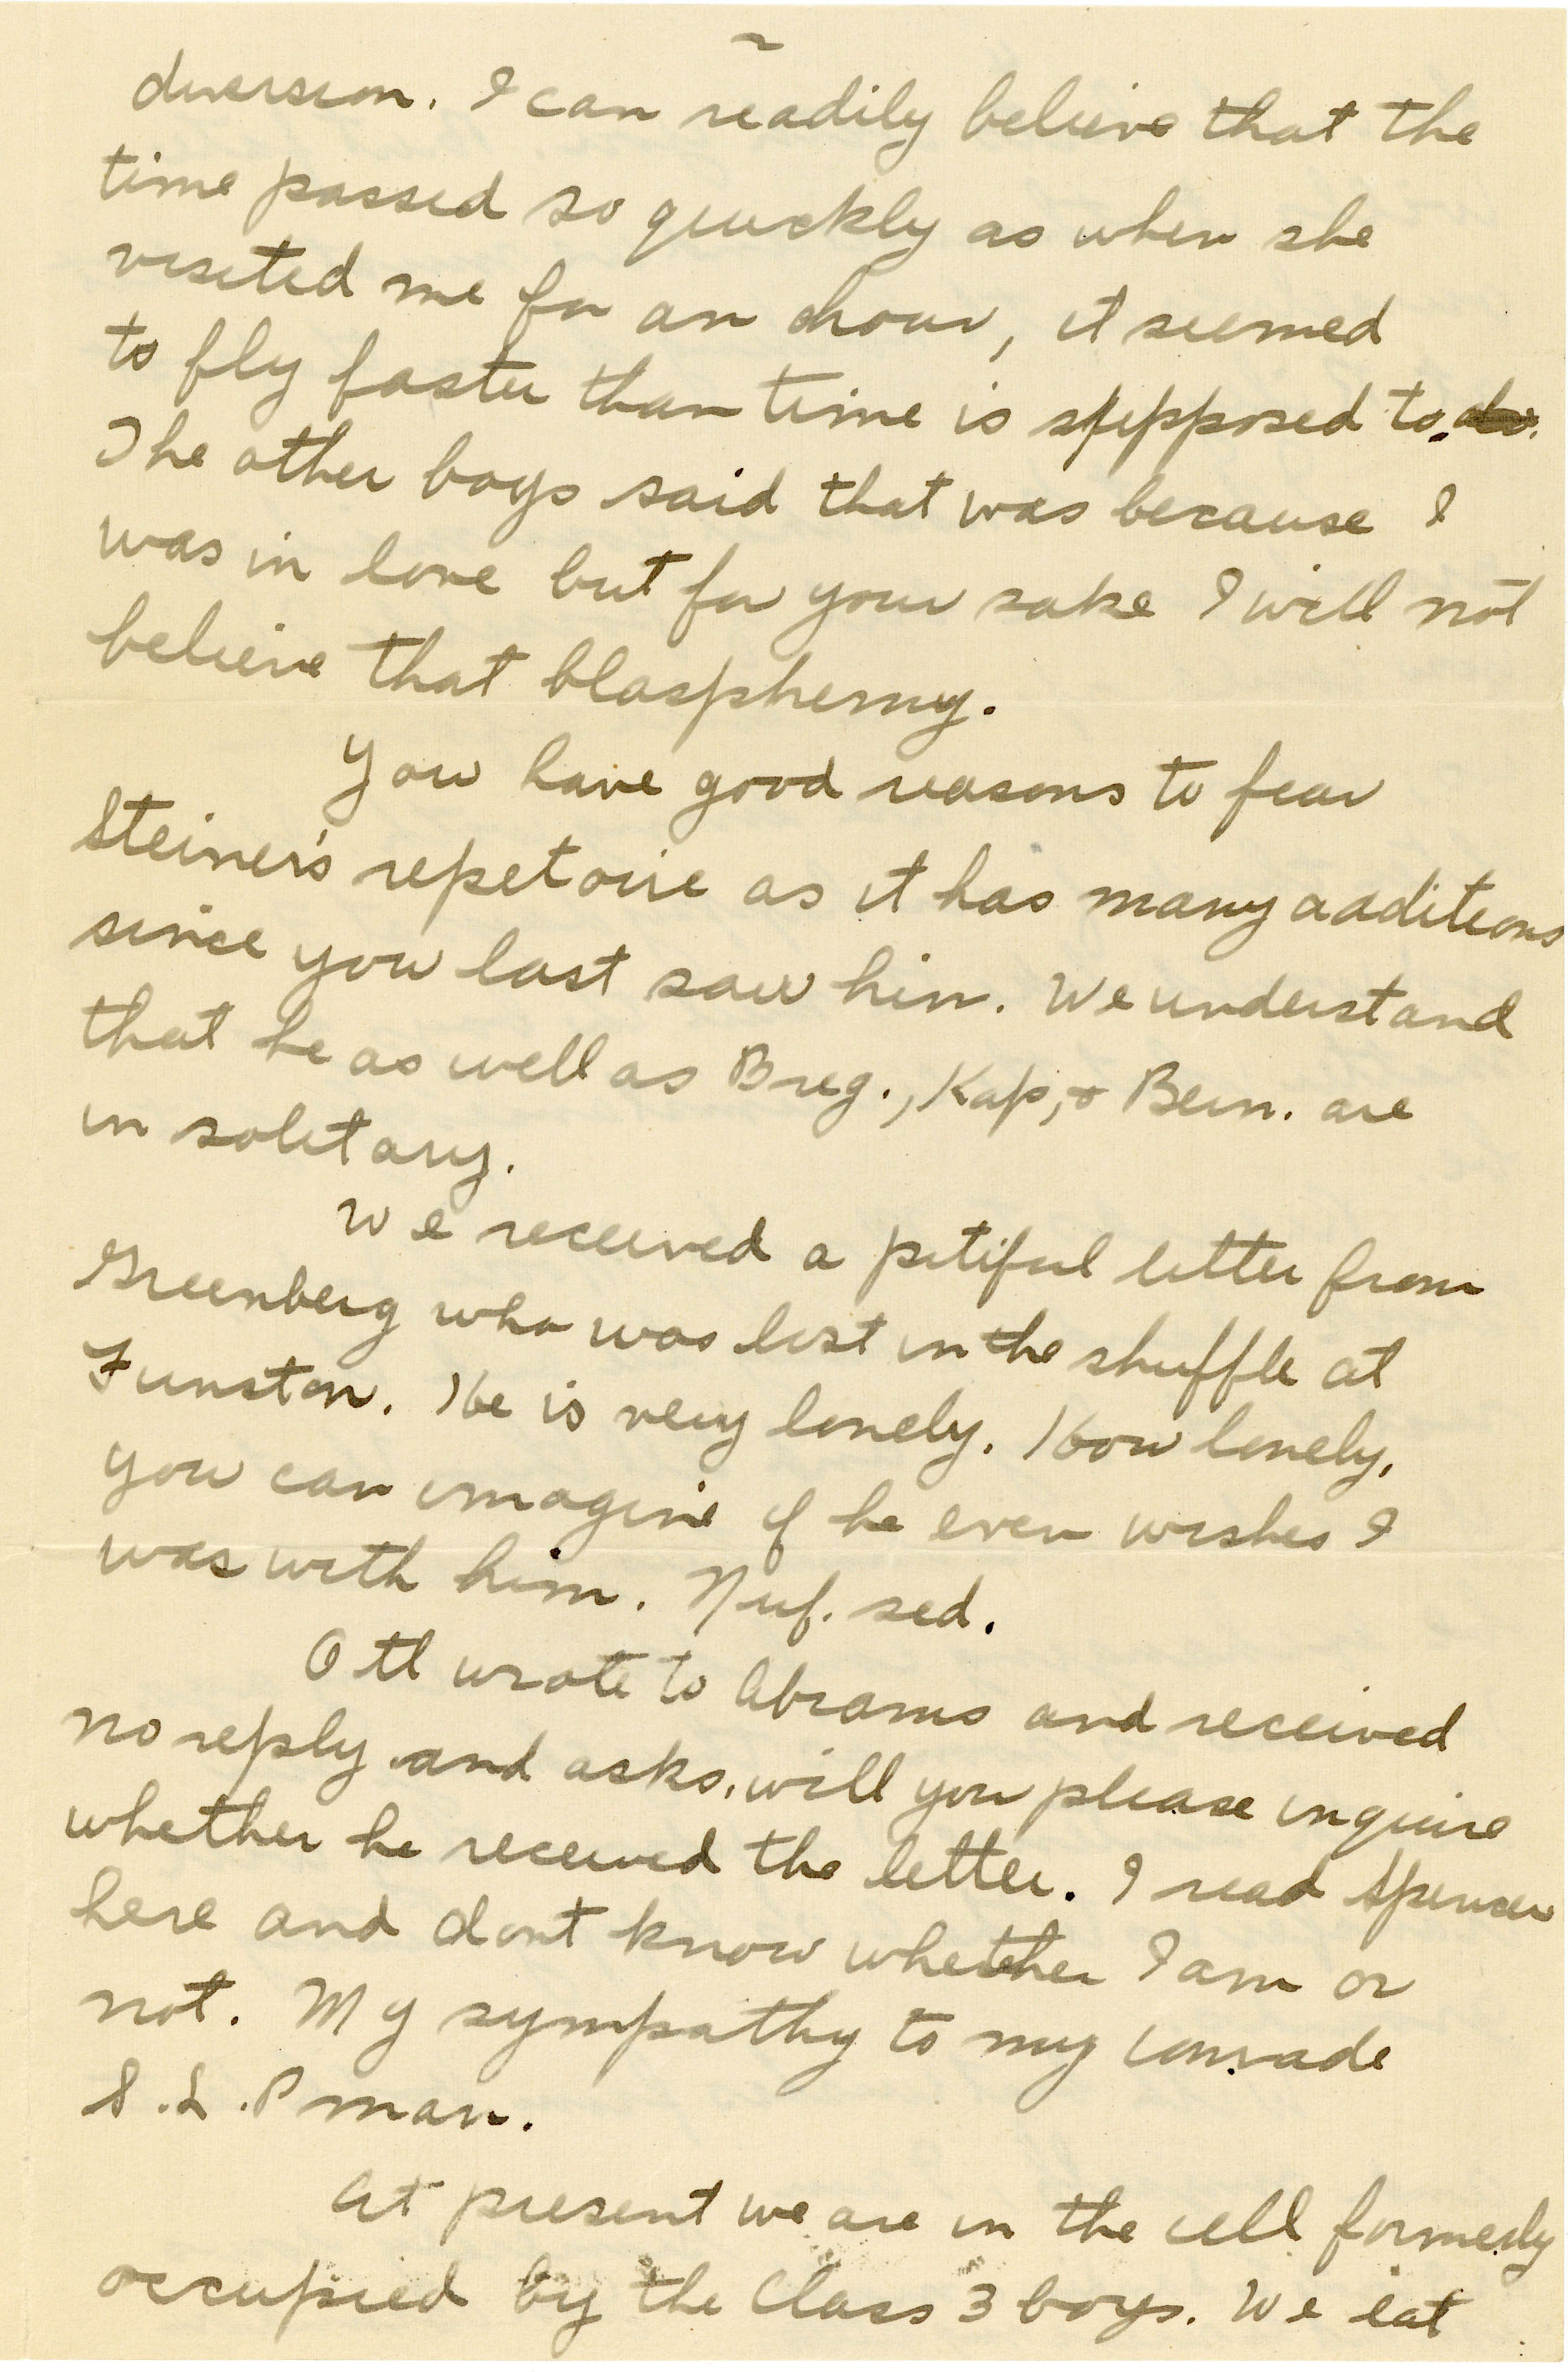 diversion. I can readily believe that the
time passed so quickly as when she
visited me for an hour, it seemed
to fly faster than time is supposed to.
The other boys said that was because I
was in love but for your sake I will not
believe that blasphemy.
You have good reasons to fear
Steiner's repetoire as it has many additions
since you last saw him. We understand
that he as well as Breg., Kap, & Bern. are
in solitary.
We received a pitiful letter from
Greenberg who was lost in the shuffle at
Funston. He is very lonely. How lonely,
you can imagine if he even wishes I
was with him. Nuf. sed.
Ott wrote to Abrams and received
no reply and asks, will you please inquire
whether he received the letter. I read Spencer
here and dont know whether I am or
not. My sympathy to my comrade
S.L.P man.
At present we are in the cell formerly
occupied by the Class 3 boys. We eat